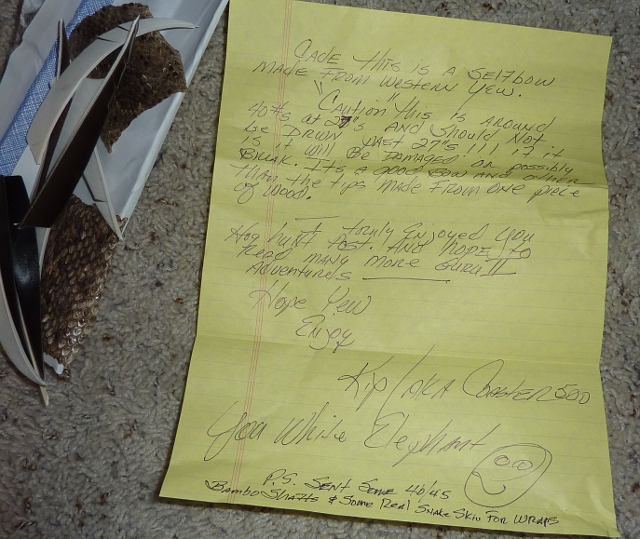 CADE THIS IS A SELFBOW
MADE FROM WESTERN YEW.
"CAUTION" THIS IS AROUND
40#s AT 27"s AND SHOULD NOT
BE DRAWN PAST 27"s!!! IF IT
IS IT WILL BE DAMAGED OR POSSIBLY
BREAK. ITS A GOOD BOW AND OTHER
THAN THE TIPS MADE FROM ONE PIECE
OF WOOD.
I TRULY ENJOYED YOU
HOG HUNT POST. AND HOPE TO
READ MANY MORE GURU!!
ADVENTURES
Hope Yew
Enjoy
Kip/AKA Coaster500
You White Elephant
P.S. SENT SOME 40/45
BAMBO SHAFTS & SOME REAL SNAKE SKIN FOR WRAPS